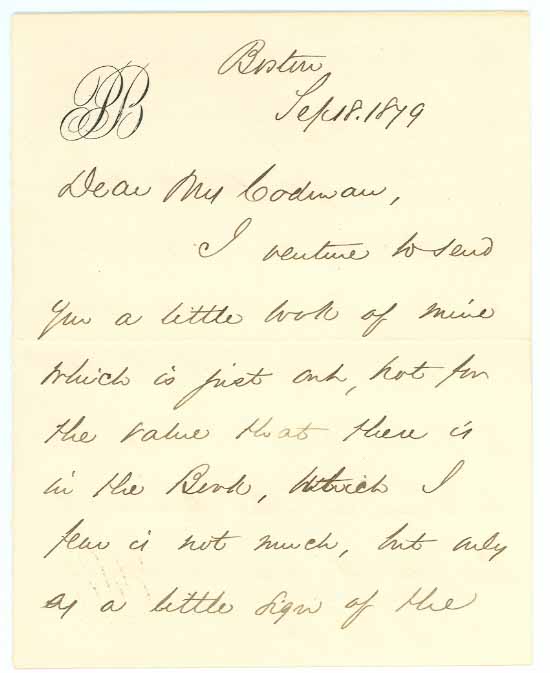 PB
Boston
Sep 18. 1879
Dear Mrs Codman,
I venture to send
you a little book of mine
which is just out, not for
the value that there is
in the Book, which I
fear is not much, but only
as a little sign of the